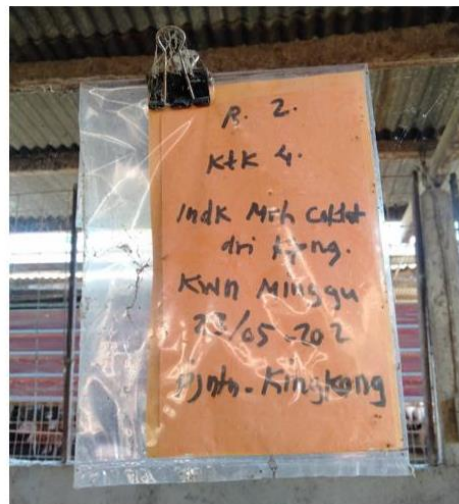 R. 2.
KtK 4.
Indk Mrh Coklat
dri
KWN Minggu
22/05-202
Pjntn - Kingkong